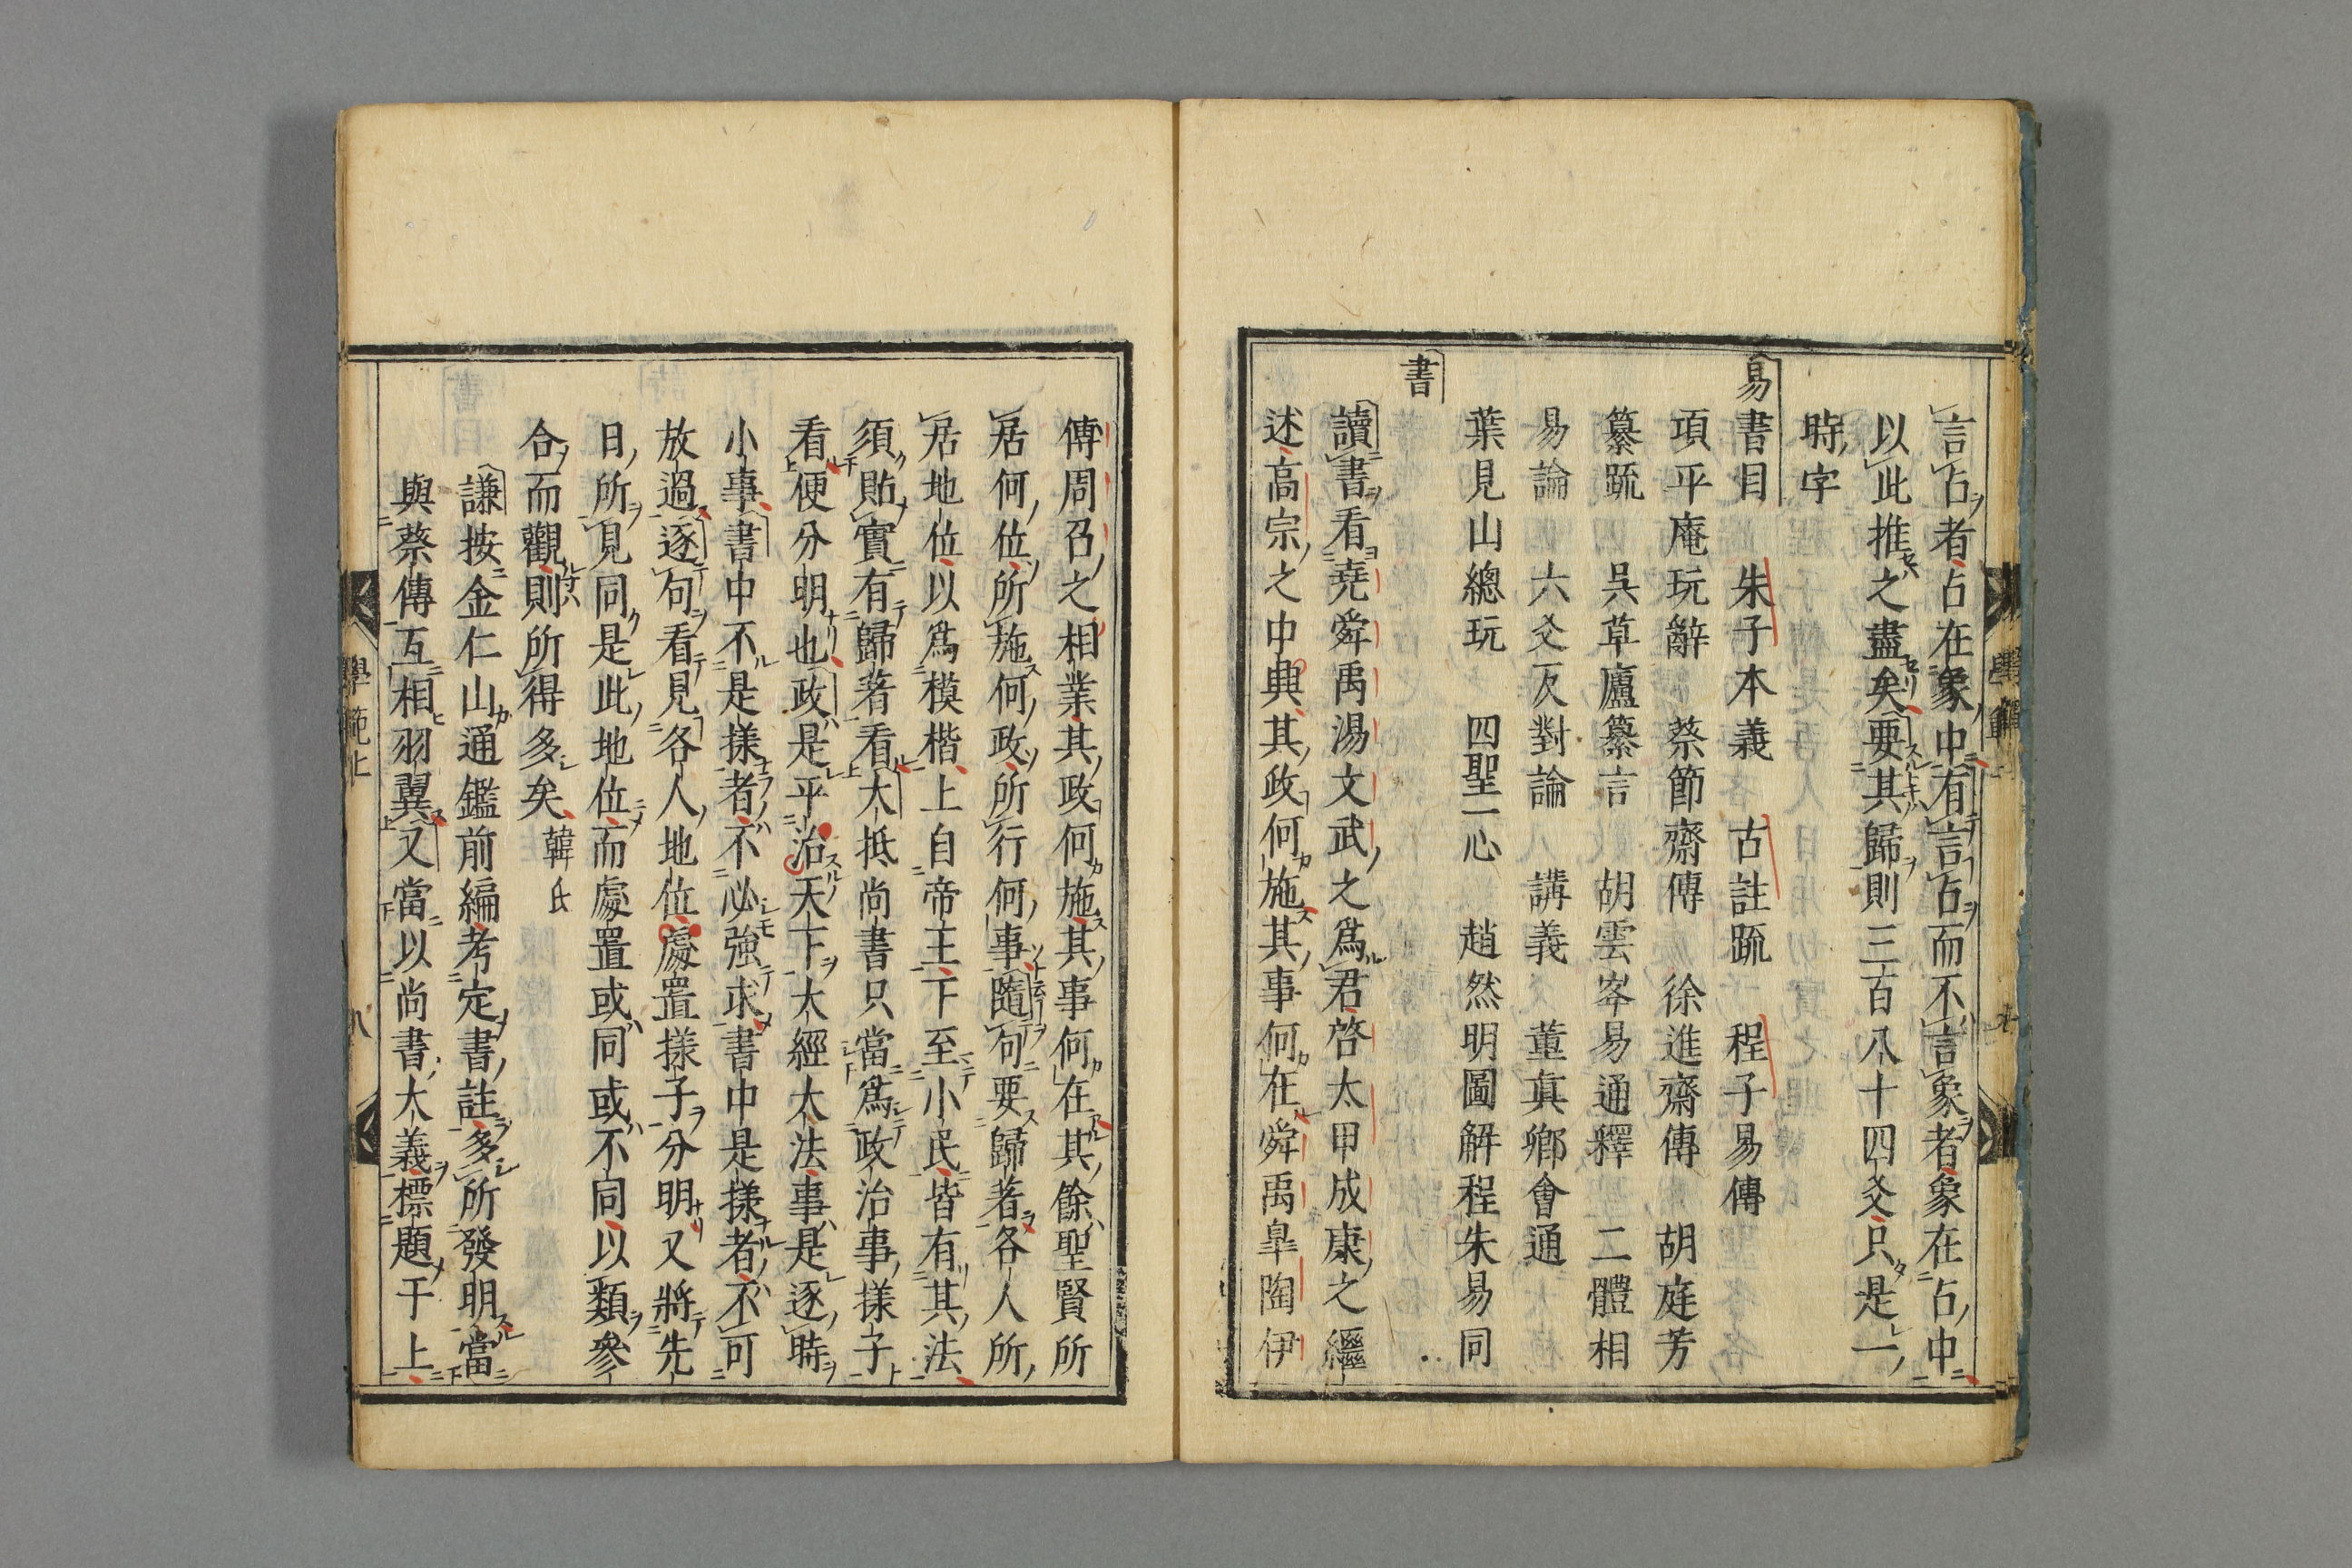 言占者占在象中有言占而不言象者象在占中
以此推之盡矣要其歸則三百八十四爻只是一
時字
易書目　朱子本義　古註䟽　程子易傳
項平庵玩辭　蔡節齋傳　徐進齋傳　胡庭芳
纂䟽　吳草廬纂言　胡雲峯易通釋　二體相
易論　六爻反對論　講義　董真鄉會通
葉見山總玩　四聖一心　趙然明圖解程朱易同
書
讀書看堯舜禹湯文武之爲君啓太甲成康之繼
述高宗之中興其政何施其事何在舜禹皐陶伊
傅周召之相業其政何施其事何在其餘聖賢所
居何位所施何政所行何事隨句要歸著各人所
居地位以爲模楷上自帝王下至小民皆有其法
須貼實有歸著看大抵尚書只當爲政治事樣子
看便分明也政是平治天下大經大法事是逐時
小事書中不是樣者不必強求書中是樣者不可
放過逐句看見各人地位處置樣子分明又將先
日所見同是此地位而處置或同或不同以類參
合而觀則所得多矣韓氏
謙按金仁山通鑑前編考定書註多所發明當
與蔡傳互相羽翼又當以尚書大義標題于上
學範上
八